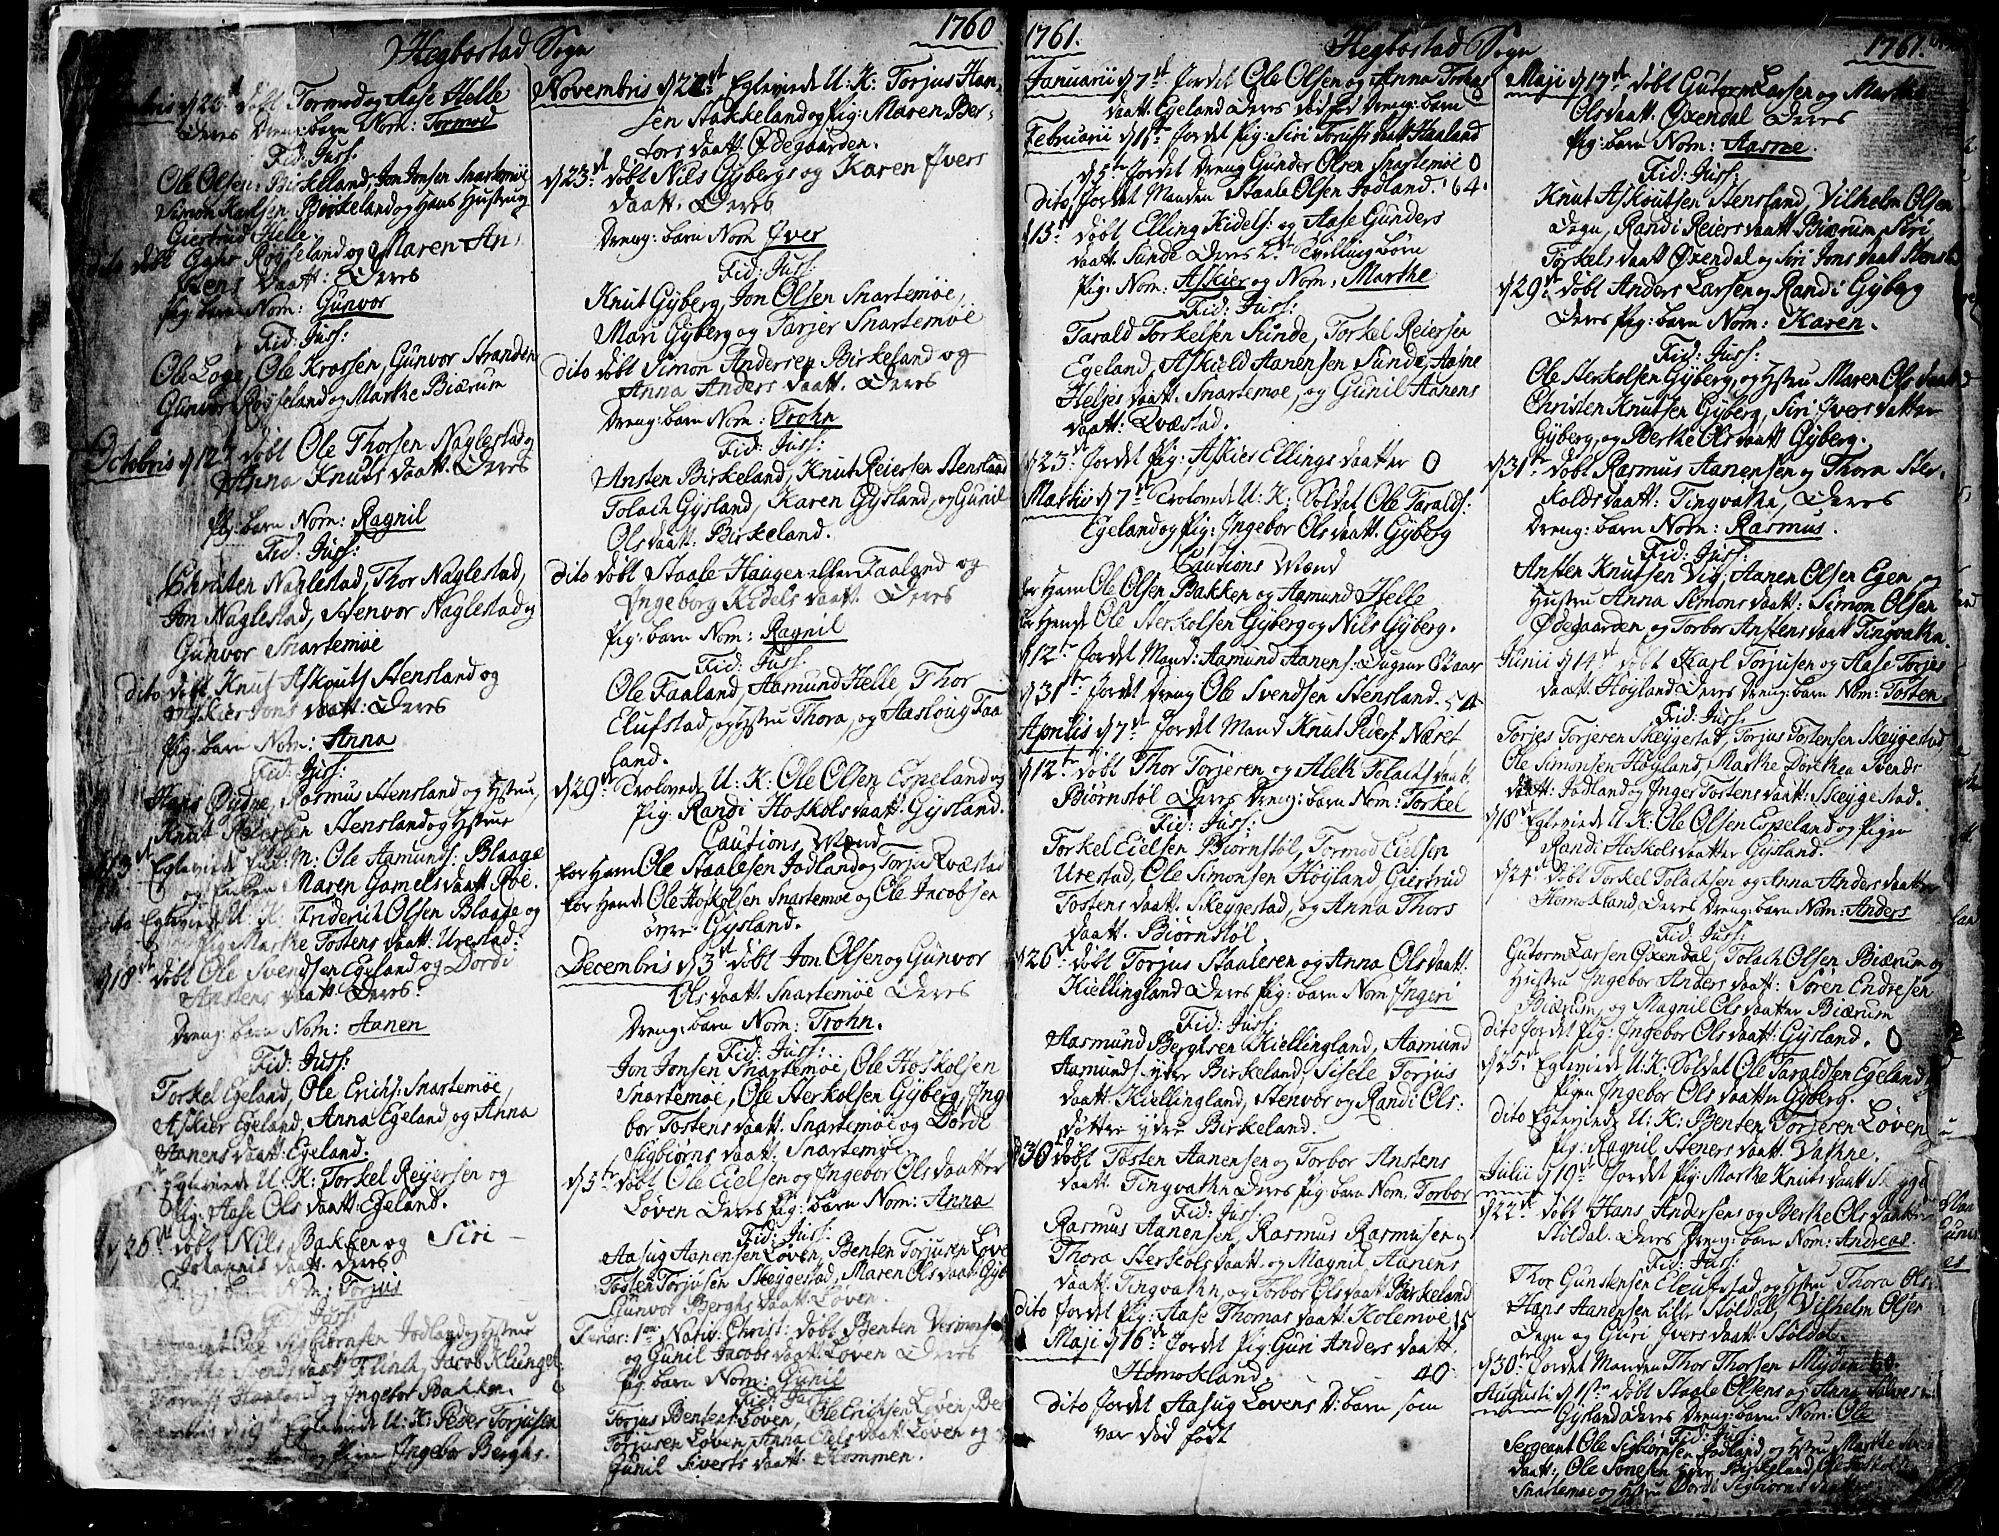 Hegbostad Sogn 1760
d 26 døbt Tormod og Aase Helle
Deres Dreng: barn Nom: Tormod
Fid: Juss:
Ole Olsen Birkeland, Jon Jonsen Snartemøe
Simon Karlsen Birkeland og Hans Hustrue
Giertrud Helle.
dito døbt Røyseland og Maren An
Daatt: Deres
Pig: barn Nom: Gunvor
Fid: Juss:
Ole Loga, Ole Krossen, Gunvor Stranden
Gunvor Røyseland og Marthe Biærum
Octobris d 12 døbt Ole Thorsen Naglestad og
Anna Knuts daatt. Deres
Pig: barn Nom: Ragnil
Fid: Juss:
Christen Naglestad, Thor Naglestad,
Jon Naglestad, Stenvor Naglestad og
Gunvor Snartemøe
dito døbt Knut Askouts Stensland og
Askier Jons daatt: Deres
Pig: barn Nom: Anna
Fid: Juss:
Hans Øydne, Rasmus Stensland og Hstrue,
Knut Stensland og Hstrue
Egteviede Ole Aamunds: Blaage
og Maren Gamels daatt Røe.
dito Egteviede U: K: Friderich Olsen Blaage og
Pig Marthe Tostens daatt: Urestad:
d 18 døbt Ole Svendsen Egeland og Dordi
Anstens daatt Deres:
Dreng: barn Nom: Aanen
Fid: Juss:
Torkel Egeland, Ole Erichs: Snartemøe,
Askier Egeland, Anna Egeland og Anna
Aanens daatt: Egeland.
Egteviede U: K: Torkel Reyersen og
Pig: Aase Ols daatt: Egeland.
d 26 døbt Nils Bakken og Siri
daatt. Deres
Dreng: barn Nom: Torjus
Fid: Juss:
Ole Sigbiørnsen Jodland og Hstrue
Flinh, Jacob Klunget
Staaland og Ingebor Bakken.
d 19 Egteviede U: K: Peder Torjusen
og Pigen Ingebor Berghs.
Novembris d 22 Egteviede U: K: Torjus Han
sen Stakkeland og Pig: Maren Ber
tors daatt: Ødegaarden.
d 23 døbt Nils Gyberg og Karen Ivers
daatt. Deres
Dreng: barn Nom Iver
Fid: Juss:
Knut Gyberg, Jon Olsen Snartemøe,
Mari Gyberg og Tarjer Snartemøe
dito døbt Simon Andersen Birkeland og
Anna Anders daatt. Deres
Dreng: barn Nom: Trohn
Fid: Juss:
Ansten Birkeland, Knut Reiersen Stensland
Tolach Gysland, Karen Gysland, og Gunil
Ols daatt: Birkeland.
dito døbt Staale Haugen eller Faaland og
Ingeborg Kidels daatt. Deres
Pig: barn Nom: Ragnil
Fid: Juss:
Ole Faaland, Aamund Helle Thor
Elufstad, og Hstru Thora, og Aasloug Faa
land.
d 29 Trolovede U: K: Ole Olsen Espeland og
Pig: Randi Hoskols daatt: Gysland.
Cautions Mænd
for Ham Ole Staalesen Jodland og Torju Qvæstad
for Hende Ole Hoskolsen Snartemøe og Ole Jacobsen
øvre Gysland.
Decembris d 3 døbt Jon Olsen og Gunvor
Ols daatt. Snartemøe Deres
Dreng: barn Nom: Trohn.
Fid: Juss:
Jon Jonsen Snartemøe, Ole Hoskolsen
Snartemøe, Ole Sterkolsen Gyberg, Inge
bor Tostens daatt: Snartemøe og Dordi
Sigbiørns daatt: Snartemøe
d 5 døbt Ole Eielsen og Ingebor Ols daatter
Løven Deres Pig: barn Nom: Anna
Fid: Juss:
Aasug Aanensen Løven, Benten Torjusen Løve
Tosten Torjusen Skeyggestad, Maren Ols daatt Gyb
Gunvor Berghs daatt: Løven.
Feriar: 1 Nativ: Christ: døbt Benten
og Gunil Jacobs daatt: Løven Deres
Pig barn Nom: Gunil
Fid: Juss:
Torjus Bentens Løven, Ole Eriksen Løven, Be
Torjusen Løven, Anna Eiels daatt Løven og
Gunil Siverts daatt: Kommen.
1761. Hegbostad Sogn 1761.
Januarii d 7 Jordet Ole Olsen og Anna Torkels
daatt Egeland Deres dødfød Dreng: barn 0
Februarii d 1 Jordet Pig: Siri Torufs daatt Haaland
d 5 Jordet Dreng Gunder Olsen Snartemøe 0
dito Jordet Manden Staale Olsen Jodland. 64.
d 15 døbt Elling Kidels: og Aase Gunders
daatt. Sunde Deres 2 Tvilling børn
Pig: Nom: Askier og Nom: Marthe
Fid: Juss:
Tarald Torkelsen Sunde, Torkel Reiersen
Egeland, Askield Aanensen Sunde, Aasne
Heljes daatt. Snartemøe, og Gunil Aanens
daatt: Qvæstad.
d 23 Jordet Pig: Askier Ellings daatter 0
Martii d 7 Trolovede U: K: Soldat Ole Taralds:
Egeland og Pig: Ingebor Ols daatt. Gyberg
Cautions Mænd
for Ham Ole Olsen Bakken og Aamund Helle
for Hende Ole Sterkolsen Gyberg og Nils Gyberg.
d 12 Jordet Mand: Aamund Aanens:
d 31 Jordet Dreng Ole Svendsen Stensland. 54
Aprilis d 7 Jordet Mand Knut Peders: Næset
d 12 døbt Thor Torjeren og Aleth Tolachs daatt.
Biørnstøl Deres Dreng: barn Nom: Torkel
Fid: Juss:
Torkel Eielsen Biørnstøl, Tormod Eielsen
Urestad, Ole Simonsen Høyland, Giertrud
Tostens daatt. Skeyggestad, og Anna Thors
daatt. Biørnstøl
d 26 døbt Torjus Staalesen og Anna Ols daatt:
Kiellingland Deres Pig: barn Nom Ingeri
Fid: Juss:
Aasmund Berghsen Kiellingland, Aamund
Aamunds: ydre Birkeland, Sisele Torjus
daatt. Kiellingland, Stenvor og Randi Ols:
døttre ydre Birkeland.
d 30 døbt Tosten Aanensen og Torbor Anstens
daatt. Tingvathn Deres Pig: barn Nom: Torbor
Fid: Juss:
Rasmus Aanensen, Rasmus Rasmusen og
Thora Sterkols daatt. og Magnil Aanens
daatt. Tingvathn, og Torbor Ols daatt Birkeland
dito Jordet Pig: Aase Thomas daatt. Kolemøe 15
Maji d 16 Jordet Pig: Guri Anders daatt.
Homekland. 40
dito Jordet Aasug Lovens D: barn som
var død født
Maji d 17 døbt Gutorm Larsen og Marthe
Ols daatt. Øxendal Deres
Pig: barn Nom: Aasne.
Fid: Juss:
Knut Askoutsen Stensland, Vilhelm Olsen
Degn, Randi Reiers daatt Biærum, Siri
Torkels daatt Øxendal og Siri Jons daatt Stensla
d 29 døbt Anders Larsen og Randi Gyberg
Deres Pig: barn Nom: Karen.
Fid: Juss:
Ole Sterkolsen Gyberg, og Hstru Maren Ols daatt
Christen Knutsen Gyberg, Siri Ivers datter
Gyberg, og Berthe Ols daatt Gyberg.
d 31 døbt Rasmus Aanensen og Thora Ster
kolds daatt: Tingvathn, Deres
Dreng: barn Nom: Rasmus.
Fid: Juss:
Ansten Knutsen Vig, Aanen Olsen Egen, og
Hustru Anna Simons daatt: Simon Olsen
Ødegaarden og Torbor Anstens daatt Tingvathn.
Junii d 14 døbt Karl Torjusen og Aase Torjes
daatt. Høyland Deres Dreng: barn Nom: Tosten.
Fid: Juss:
Torjes Torjeren Skeyggestad, Torjus Tostensen Skeyggestad
Ole Simonsen Høyland, Marthe Dorthea Svends
daatt: Jodland og Inger Tostens daatt: Skeyggestad.
d 18 Egteviede U: K: Ole Olsen Espeland og Pigen
Randi Hoskols daatter Gysland.
d 24 døbt Torkel Tolachsen og Anna Anders daatter
Homekland, Deres Dreng: barn Nom: Anders
Fid: Juss:
Gutorm Larsen Øxendal, Tolach Olsen Biærum og
Hustru Ingebor Anders daatt: Søren Endresen
Biærum, og Magnil Ols daatter Biærum
dito Jordet Pig: Ingebor Ols daatt: Gysland. 0
d 25 Egteviede U: K: Soldat Ole Taraldsen Egeland
Pigen Ingebor Ols daatter Gyberg.
dito Egteviede U: K: Benten Torjeren Løven
Pig: Ragnil Steners daatt: Vathne.
Julii d 19 Jordet Pig: Marthe Knuts daatt Skegge
d 22 døbt Hans Andersens og Berthe Ols daatter
Stildal. Deres Dreng: barn Nom: Andreas.
Fid: Juss:
Thor Gundersen Eleufstad og Hstru Thora Ols
Hans Aanensen lille Støldal, Vilhelm Olsen
Degn og Guri Ivers daatt: Støldal.
d 30 Jordet Manden Thor Thorsen 60.
Augusti d 1 døbt Staale Olsens og Anna
Gysland Deres Dreng: barn Nom: Ole
Fid: Juss:
Sergeant Ole Sigbiørnsen Jodland, og Hstru Marthe
daatt: Ole Birkeland,
Snartemøe og Hstru Dordi Sigbiørns daatter